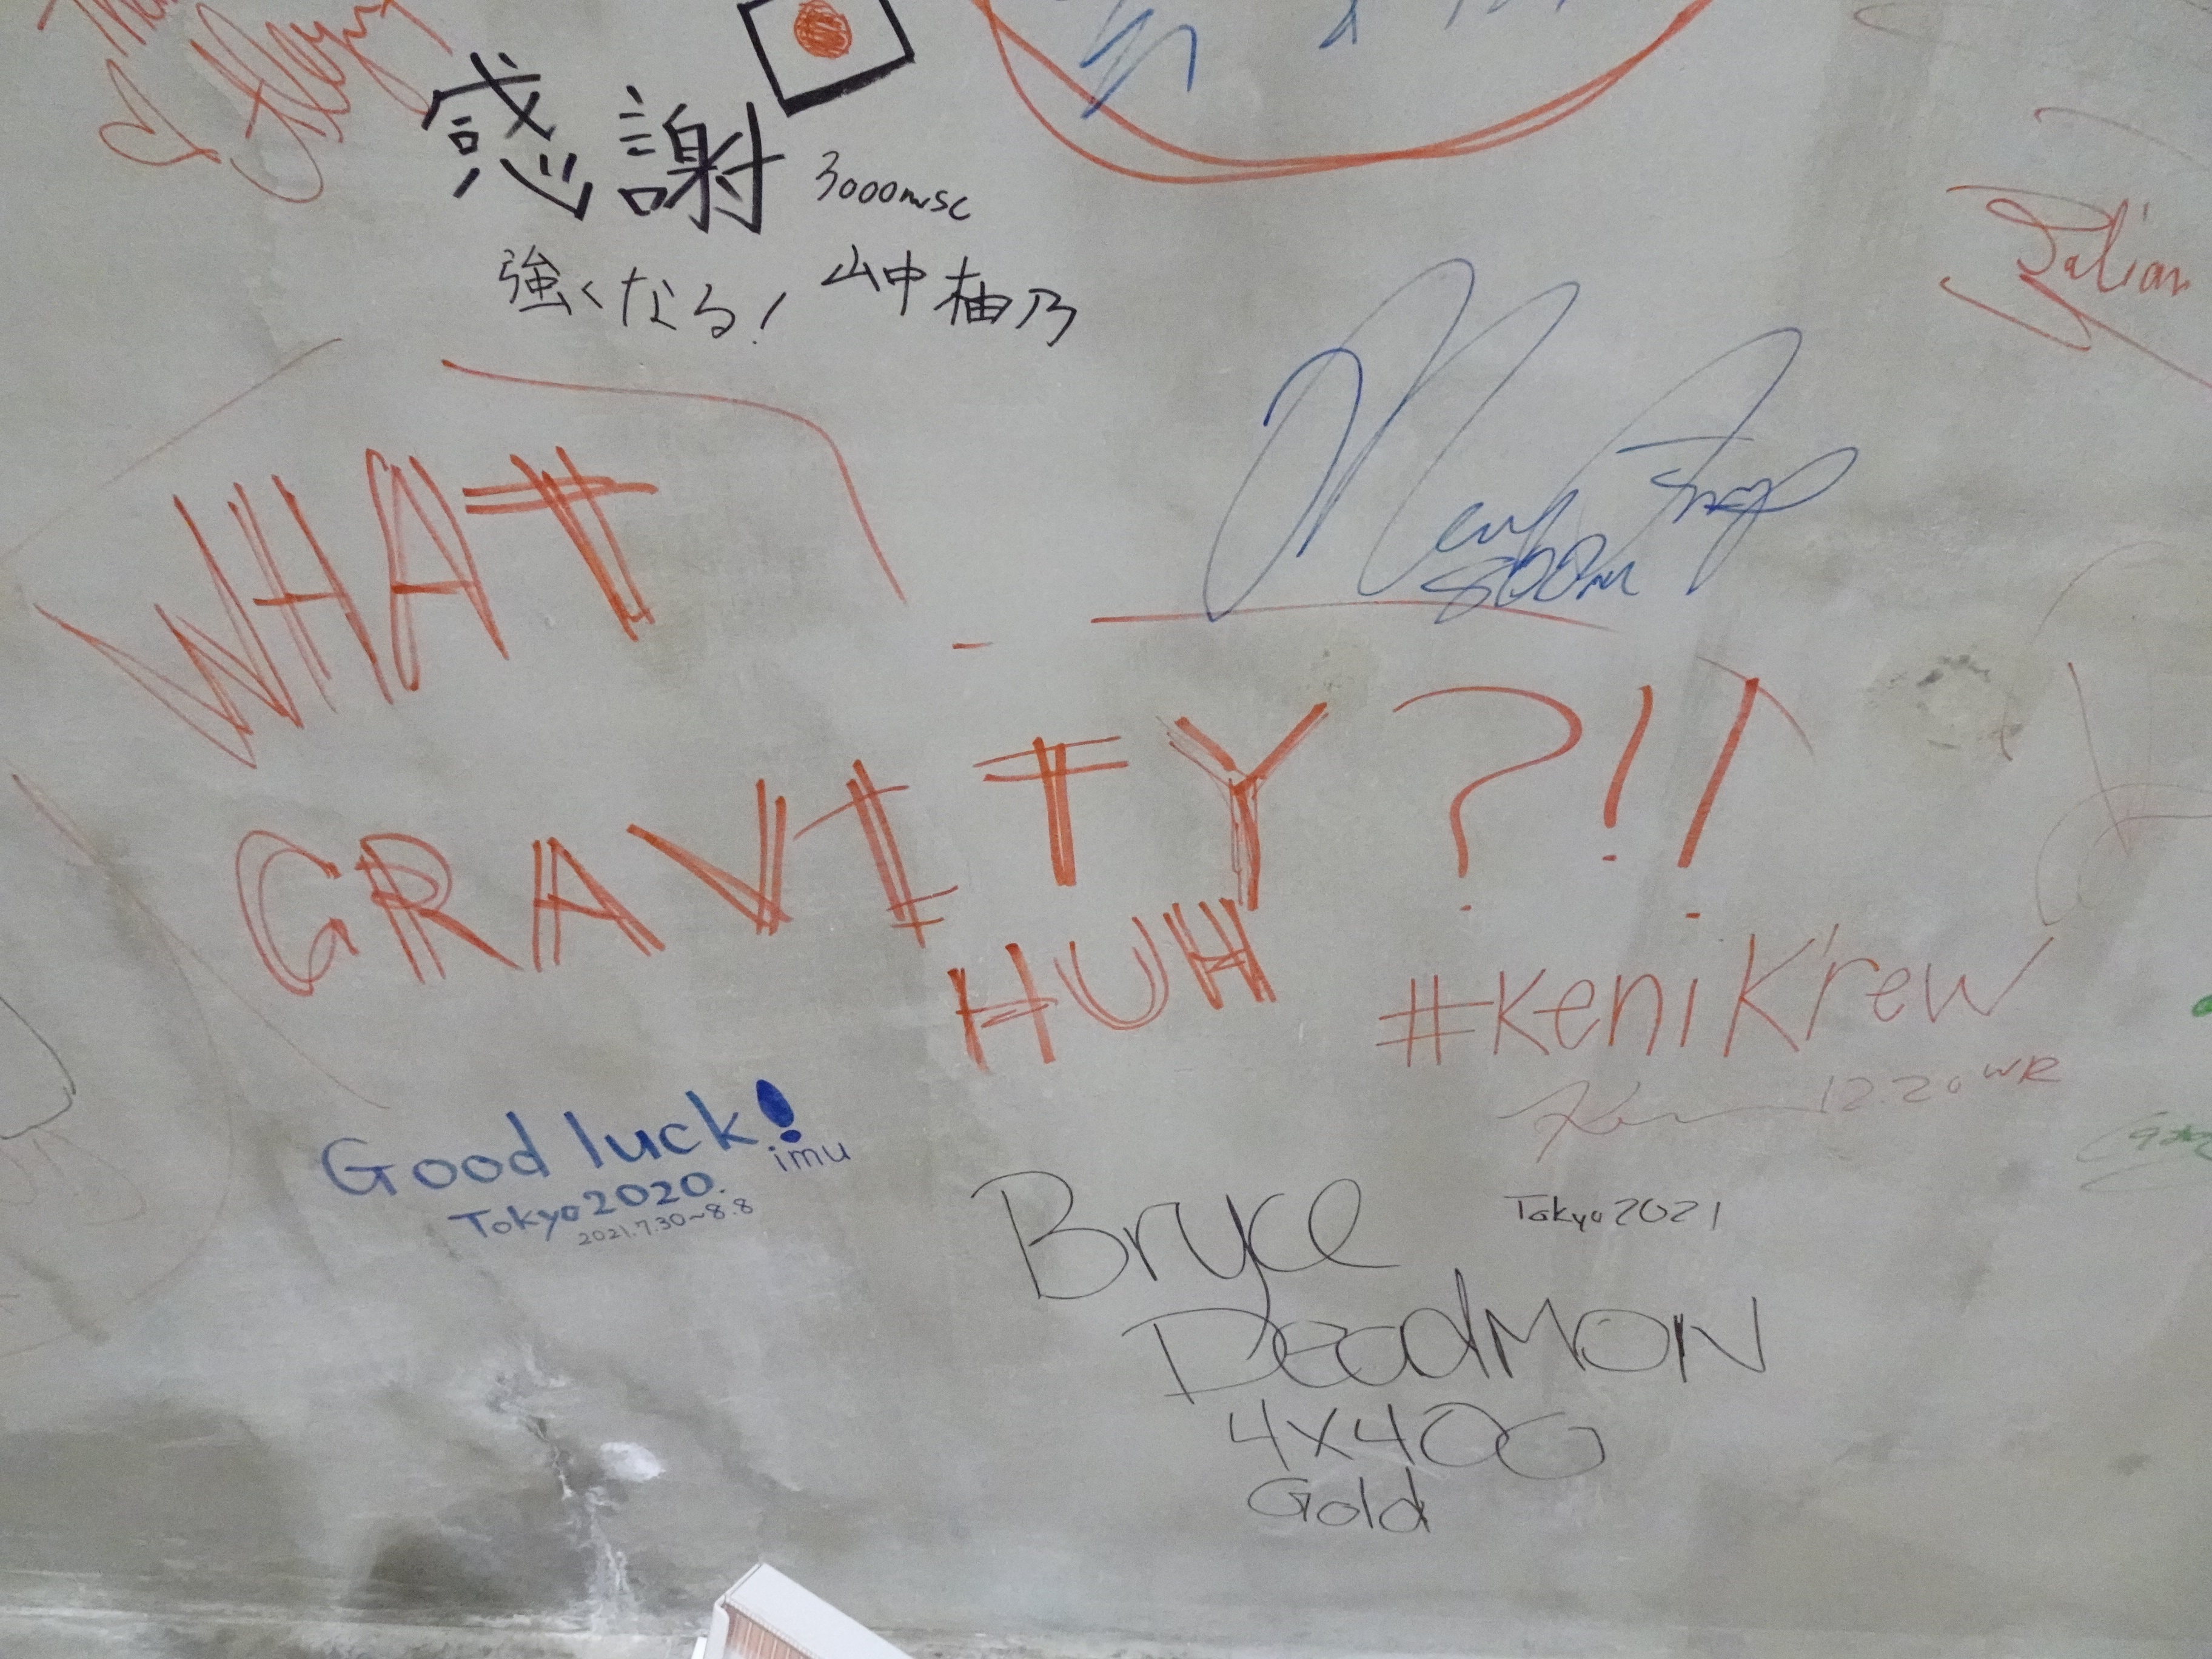 感謝
3000msc
強くなる! 山中柚乃
Julian
800m
WHAT
GRAVITY?!!
HUH
#KeniKrew
12.20 WR
Good luck!
imu
Tokyo2020.
2021.7.30~8.8
Tokyo2021
Bryce
DeadMON
4x400
Gold